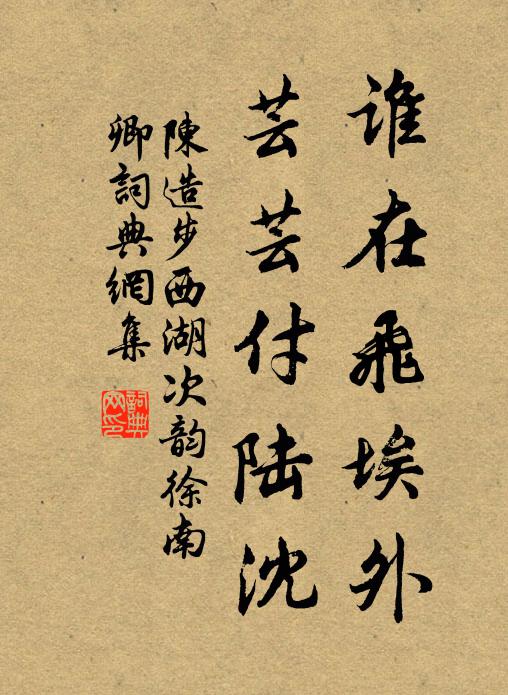 谁在飛埃外
芸芸付陆沈
陳造步西湖次韵徐南
卿詞典網集
詞典网印